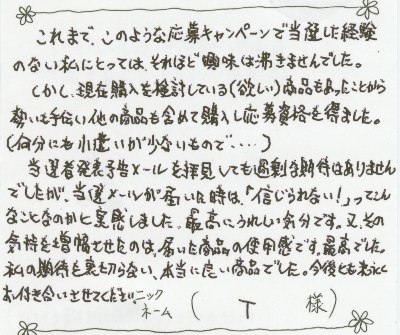 これまで、このような応募キャンペーンで当選した経験
のない私にとっては、それほど興味は沸きませんでした。
しかし、現在購入を検討している(欲しい)商品もあったことから
勢いも手伝い他の商品も含めて購入し応募資格を得ました。
(何分にも小遣いが少ないもので････)
当選者発表予告メールを拝見しても過剰な期待はありません
でしたが、当選メールが届いた時は、「信じられない!」ってこん
なことなのかと実感しました。最高にうれしい気分です。又、その
気持を増幅させたのは、届いた商品の使用感です。最高でした。
私の期待を裏切らない、本当に良い商品でした。今後とも末永く
お付き合いさせてください。ニック
ネーム ( T 様)